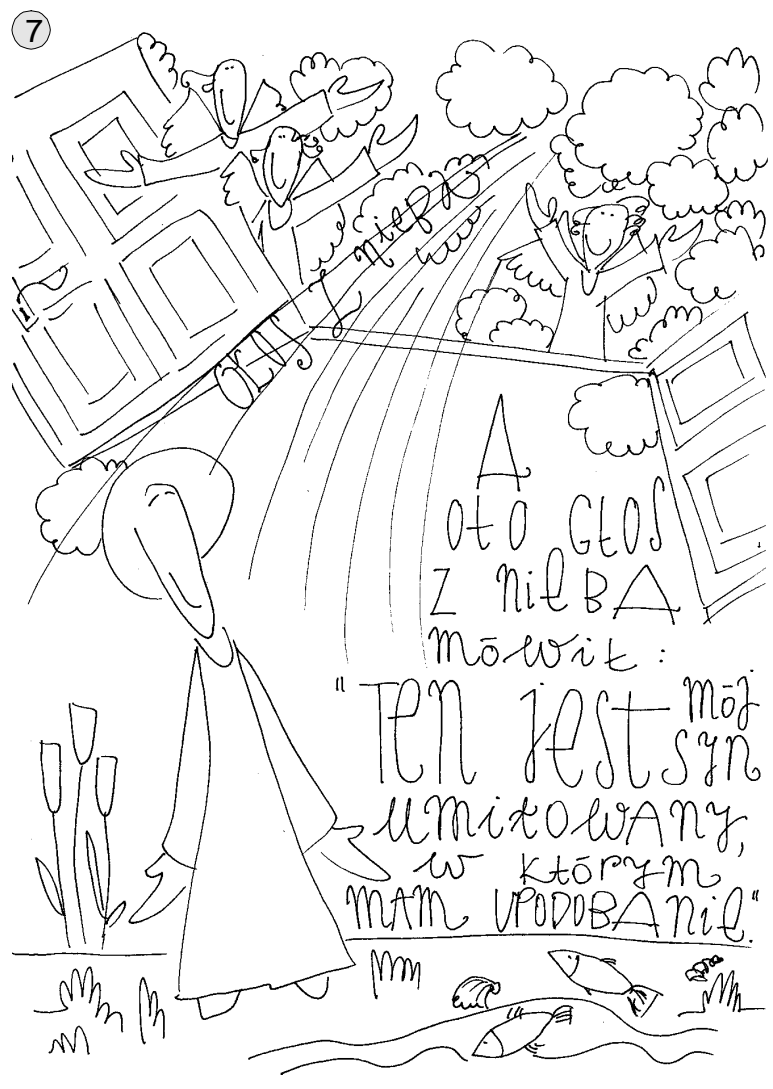 7
z nieba
A
oto GŁOS
Z nieBA
mówił:
"Ten jest mój
syn
umiłowAny,
w którym
MAM UPODOBAnie."